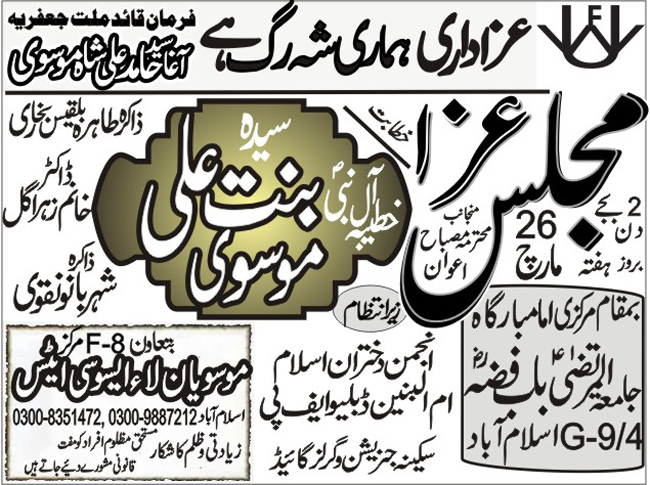 عزاداری ہماری شہ رگ ہے
فرمان قائد ملت جعفریہ
آغا سید حامد علی شاہ موسوی
WF
مجلس عزا
2 بجے دن
بروز ہفتہ
26 مارچ
منجانب
محترمہ مصباح اعوان
خطابت
سیدہ
خطیبہ آل نبیؐ
بنت علی موسوی
ذاکرہ طاہرہ بلقیس بخاری
ڈاکٹر
خانم زہرا گل
ذاکرہ
شہر بانو نقوی
بمقام مرکزی امامبارگاہ
جامعہ المرتضیٰؑ باب فضہؓ
G-9/4 اسلام آباد
زیر انتظام
انجمن دختران اسلام
ام البنین ڈبلیو ایف پی
سکینہ جنریشن و گرلز گائیڈ
بتعاون F-8 مرکز
موسویان لاء ایسوسی ایٹس
اسلام آباد 0300-8351472, 0300-9887212
زیادتی و ظلم کا شکار مستحق مظلوم افراد کو مفت
قانونی مشورے دیئے جاتے ہیں